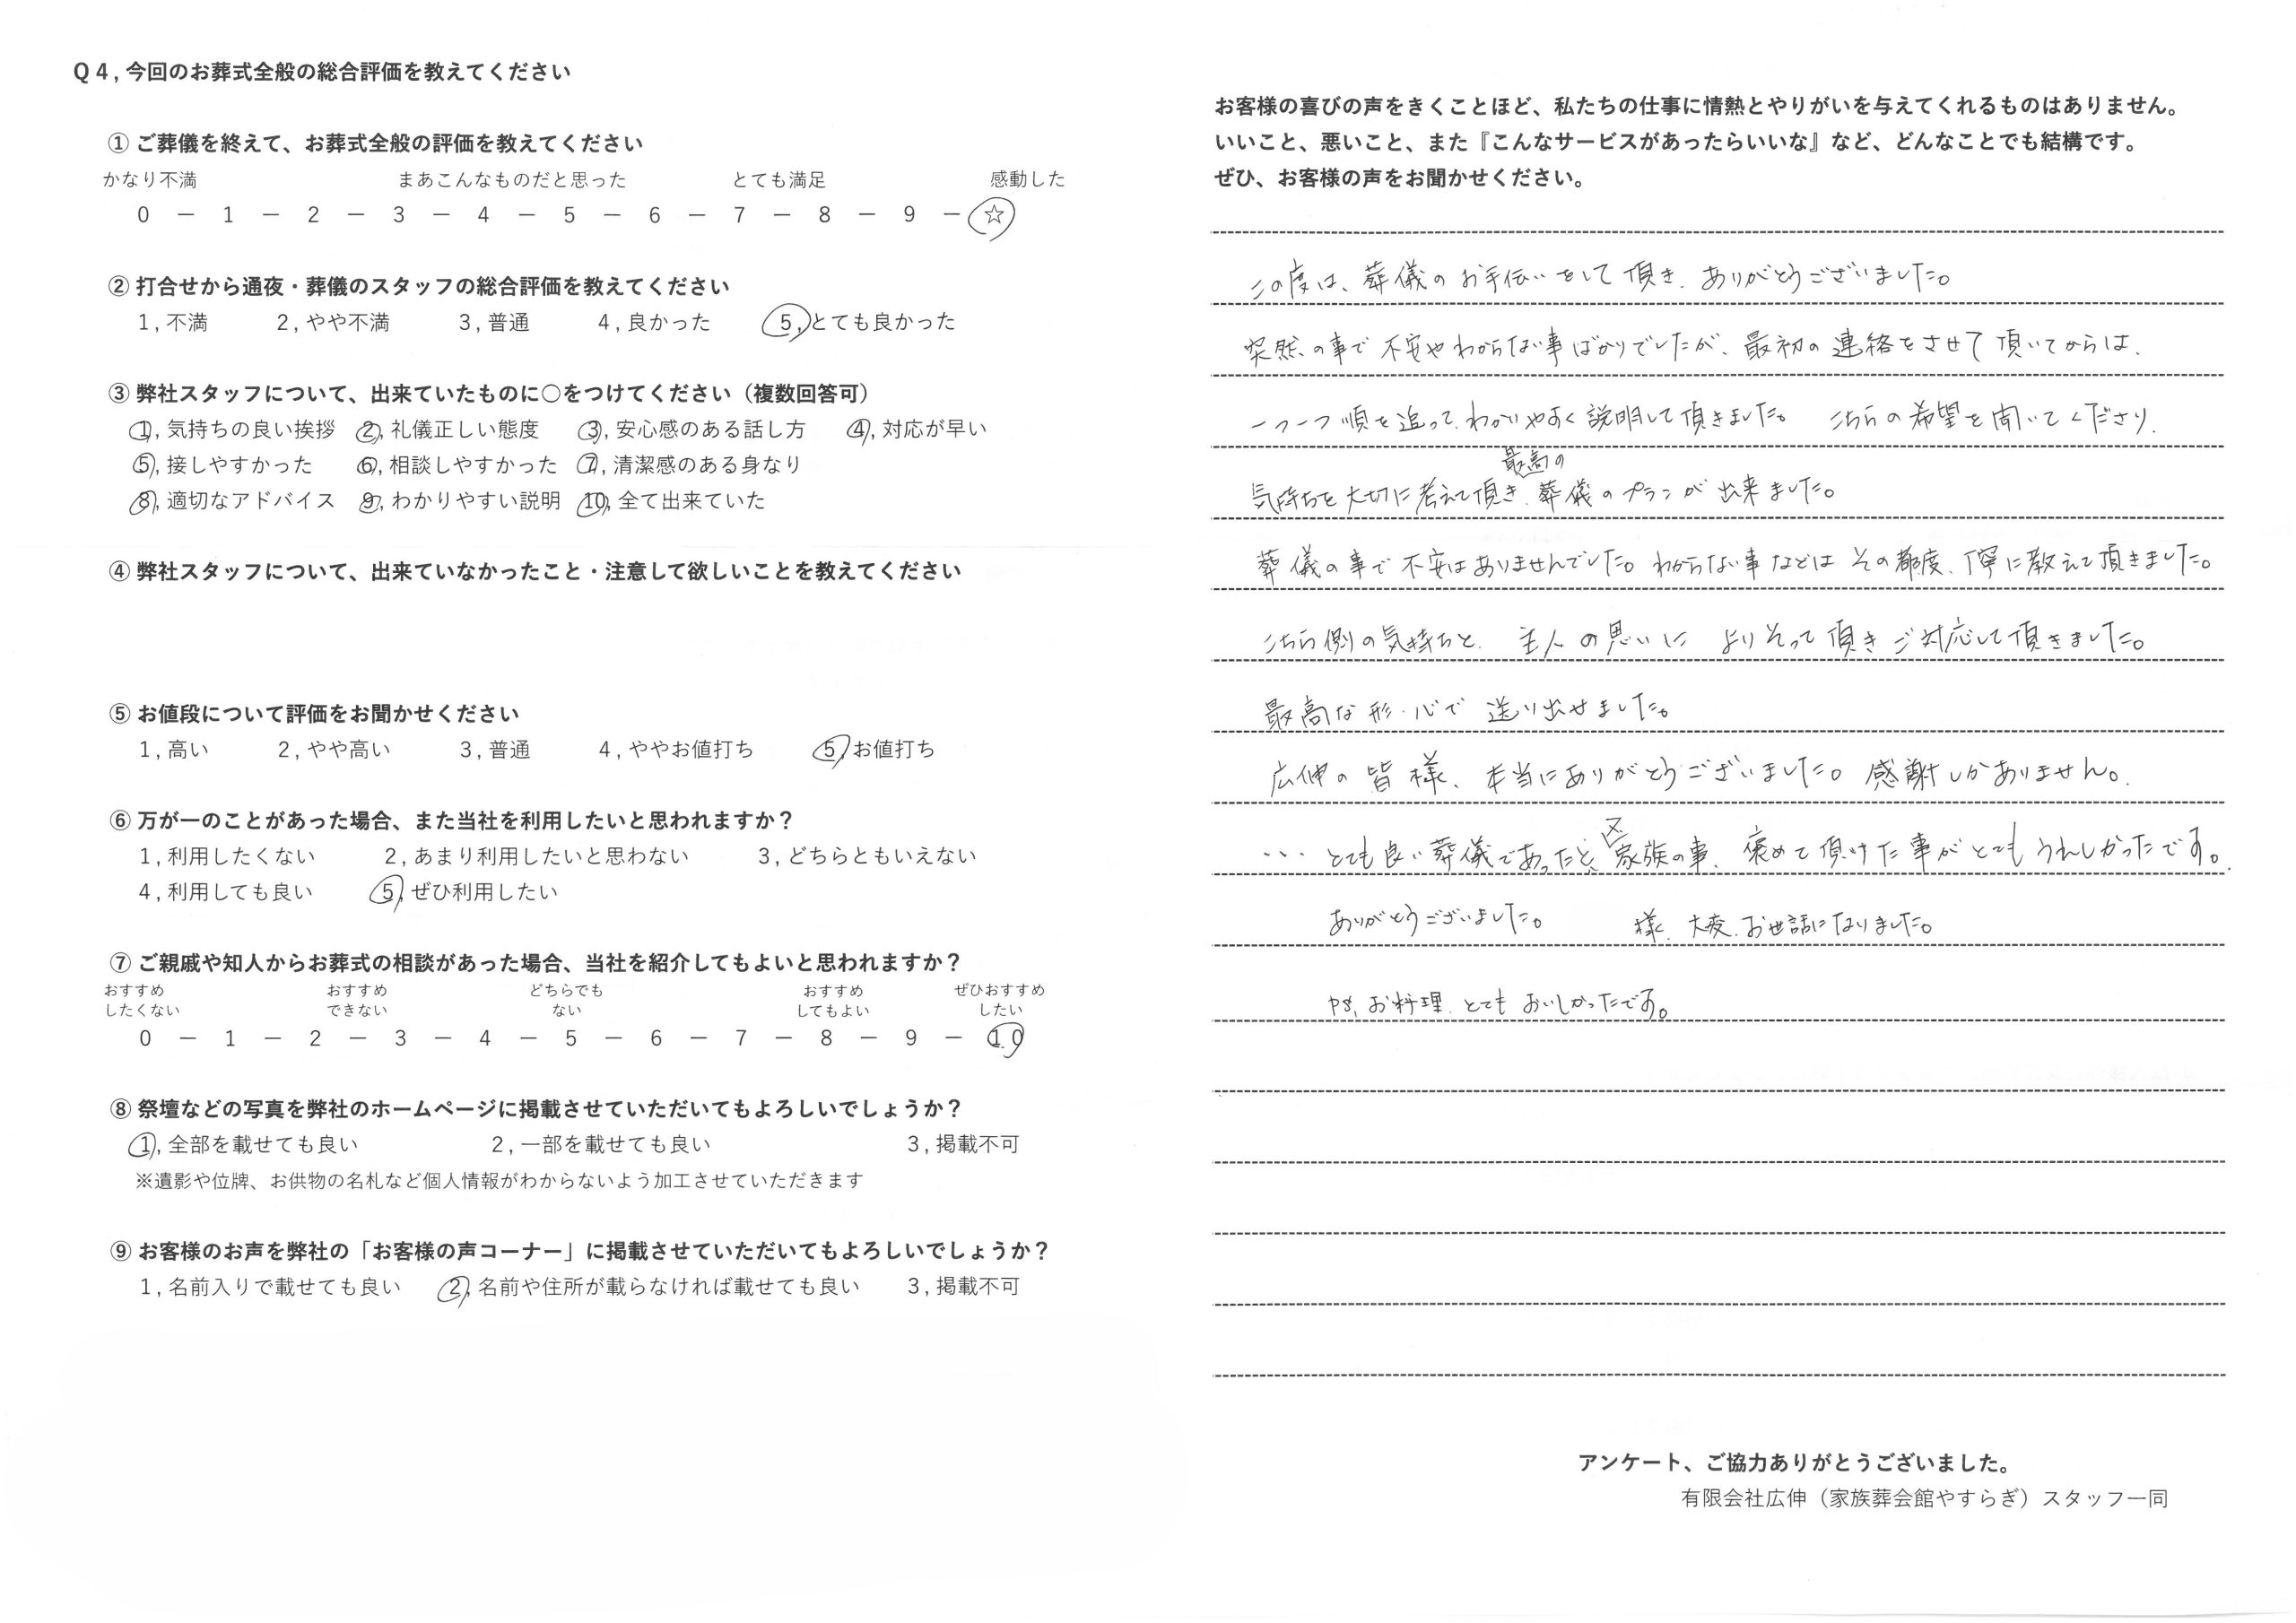 Q4,今回のお葬式全般の総合評価を教えてください
① ご葬儀を終えて、お葬式全般の評価を教えてください
かなり不満 まあこんなものだと思った とても満足 感動した
0 − 1 − 2 − 3 − 4 − 5 − 6 − 7 − 8 − 9 − ☆
② 打合せから通夜・葬儀のスタッフの総合評価を教えてください
1,不満 2,やや不満 3,普通 4,良かった 5,とても良かった
③ 弊社スタッフについて、出来ていたものに○をつけてください（複数回答可）
1,気持ちの良い挨拶 2,礼儀正しい態度 3,安心感のある話し方 4,対応が早い
5,接しやすかった 6,相談しやすかった 7,清潔感のある身なり
8,適切なアドバイス 9,わかりやすい説明 10,全て出来ていた
④ 弊社スタッフについて、出来ていなかったこと・注意して欲しいことを教えてください
⑤ お値段について評価をお聞かせください
1,高い 2,やや高い 3,普通 4,ややお値打ち 5,お値打ち
⑥ 万が一のことがあった場合、また当社を利用したいと思われますか？
1,利用したくない 2,あまり利用したいと思わない 3,どちらともいえない
4,利用しても良い 5,ぜひ利用したい
⑦ ご親戚や知人からお葬式の相談があった場合、当社を紹介してもよいと思われますか？
おすすめ おすすめ どちらでも おすすめ ぜひおすすめ
したくない できない ない してもよい したい
0 − 1 − 2 − 3 − 4 − 5 − 6 − 7 − 8 − 9 − 10
⑧ 祭壇などの写真を弊社のホームページに掲載させていただいてもよろしいでしょうか？
1,全部を載せても良い 2,一部を載せても良い 3,掲載不可
※遺影や位牌、お供物の名札など個人情報がわからないよう加工させていただきます
⑨ お客様のお声を弊社の「お客様の声コーナー」に掲載させていただいてもよろしいでしょうか？
1,名前入りで載せても良い 2,名前や住所が載らなければ載せても良い 3,掲載不可
お客様の喜びの声をきくことほど、私たちの仕事に情熱とやりがいを与えてくれるものはありません。
いいこと、悪いこと、また『こんなサービスがあったらいいな』など、どんなことでも結構です。
ぜひ、お客様の声をお聞かせください。
この度は、葬儀のお手伝いをして頂き、ありがとうございました。
突然の事で不安やわからない事ばかりでしたが、最初の連絡をさせて頂いてからは、
一つ一つ順を追って、わかりやすく説明して頂きました。 こちらの希望を聞いてくださり、
気持ちを大切に考えて頂き、最高の葬儀のプランが出来ました。
葬儀の事で不安はありませんでした。わからない事などはその都度、丁寧に教えて頂きました。
こちら側の気持ちと、主人の思いによりそって頂きご対応して頂きました。
最高な形・心で送り出せました。
広伸の皆様、本当にありがとうございました。感謝しかありません。
… とても良い葬儀であったと、又家族の事、褒めて頂けた事がとてもうれしかったです。
ありがとうございました。 様、大変、お世話になりました。
お料理、とてもおいしかったです。
アンケート、ご協力ありがとうございました。
有限会社広伸（家族葬会館やすらぎ）スタッフ一同